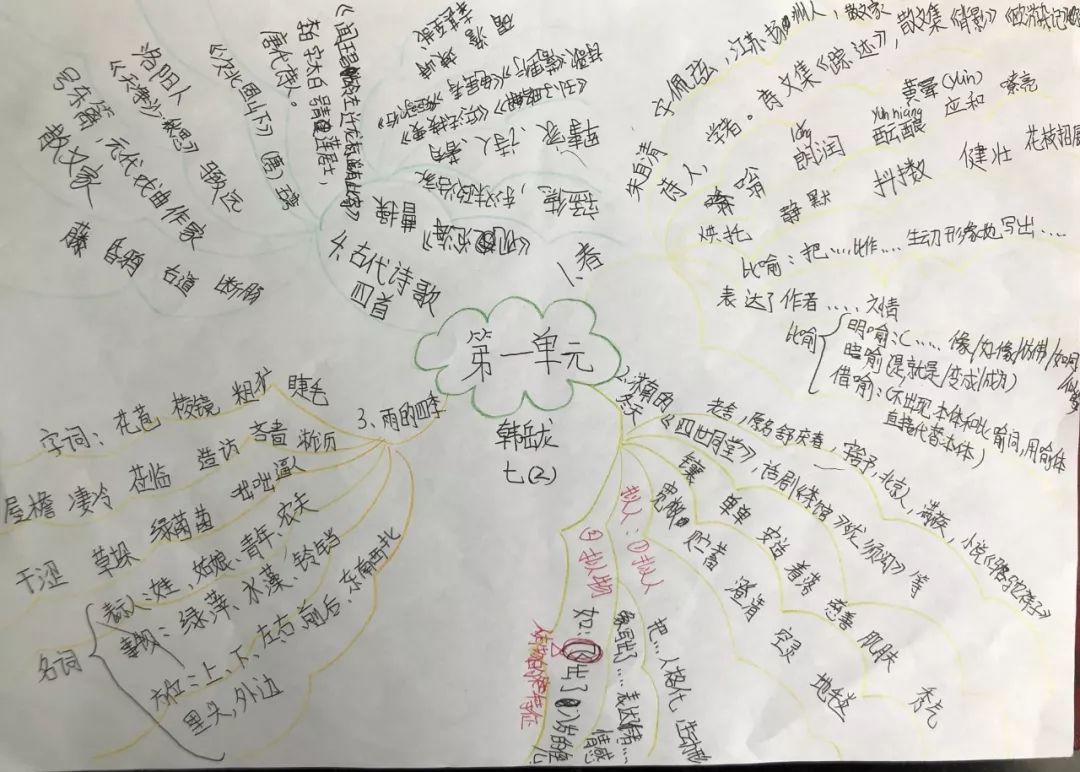 第一单元
韩岳龙
七(2)
1、春
朱自清 字佩弦,江苏扬州人,散文家
诗人,学者。诗文集《踪迹》,散文集《背影》《欧游杂记》
嗡 朗润 酝酿 黄晕(yùn) 应和 嘹亮
yùn niàng
静默 抖擞 健壮 花枝招展
烘托
比喻:把……比作……生动形象地写出……
表达了作者……之情
比喻
明喻:(……像/好像/仿佛/如同
暗喻(是/就是/变成/成为)
借喻:(不出现本体和比喻词,用喻体
直接代替本体)
2.济南的
冬天
老舍,原名舒庆春,字舍予,北京人,满族,小说《骆驼祥子》
《四世同堂》,话剧《茶馆》《龙须沟》等
镶 单单 安适 着落 慈善 肌肤 秀气
宽敞 贮蓄 澄清 空灵 地毯
拟人:①拟人
②拟物
把…人格化,生动地
写出了……表达
情感
3、雨的四季
字词:花苞 棱镜 粗犷 睫毛
屋檐 凄冷 莅临 造访 吝啬 淅沥
干涩 草垛 绿茵茵 咄咄逼人
名词
表人:娃,姑娘、青年、农夫
事物:绿萍、水藻、铃铛
方位:上、下、左右、前后、东南西北
里头,外边
4、古代诗歌
四首
《观沧海》
曹操
孟德,东汉政治家
军事家、诗人
《闻王昌龄左迁龙标遥有此寄》
李太白 号青莲居士,
唐代诗人。
《次北固山下》(唐)王湾
《天净沙·秋思》马致远
洛阳人
号东篱 元代戏曲作家
散文家
藤 昏鸦 古道 断肠